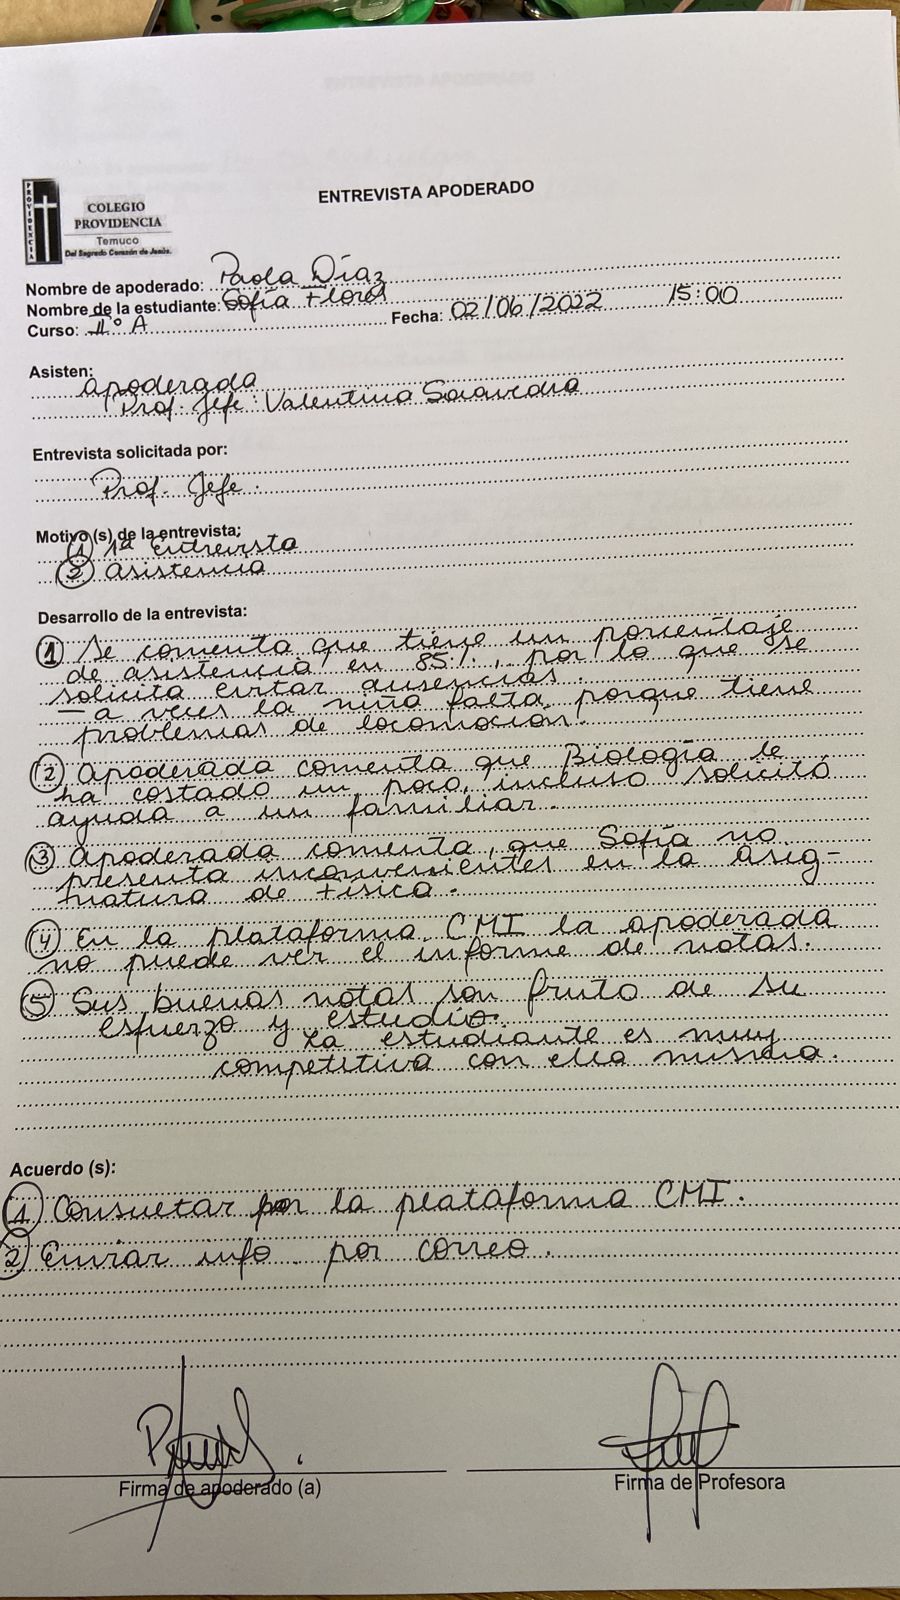 ENTREVISTA APODERADO
PROVIDENCIA
COLEGIO
PROVIDENCIA
Temuco
Del Sagrado Corazón de Jesús.
Nombre de apoderado: Paola Díaz
Nombre de la estudiante: Sofía Flores
Curso: II° A Fecha: 02/06/2022 15:00
Asisten:
Apoderada
Prof. Jefe: Valentina Saavedra
Entrevista solicitada por:
Prof. Jefe.
Motivo (s) de la entrevista:
(1) 1ª entrevista
(2) Asistencia
Desarrollo de la entrevista:
(1) Se comenta que tiene un porcentaje
de asistencia en 85%, por lo que se
solicita evitar ausencias.
– a veces la niña falta porque tiene
problemas de locomoción.
(2) Apoderada comenta que Biología le
ha costado un poco, incluso solicitó
ayuda a un familiar.
(3) Apoderada comenta, que Sofía no
presenta inconvenientes en la asig-
natura de Física.
(4) En la plataforma CMI la apoderada
no puede ver el informe de notas.
(5) Sus buenas notas son fruto de su
esfuerzo y estudio.
La estudiante es muy
competitiva con ella misma.
Acuerdo (s):
(1) Consultar por la plataforma CMI.
(2) Enviar info. por correo.
Firma de apoderado (a) Firma de Profesora